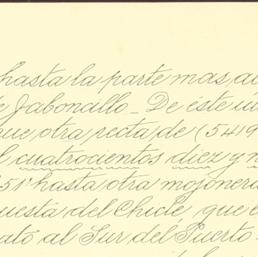 hasta la parte mas, a
e Jaboncillo_ De éste ú
ue otra recta de (5419
l cuatrocientos diez y n
51' hasta otra mojoner
uesta del Chicle, que e
ató al Sur del Puerto